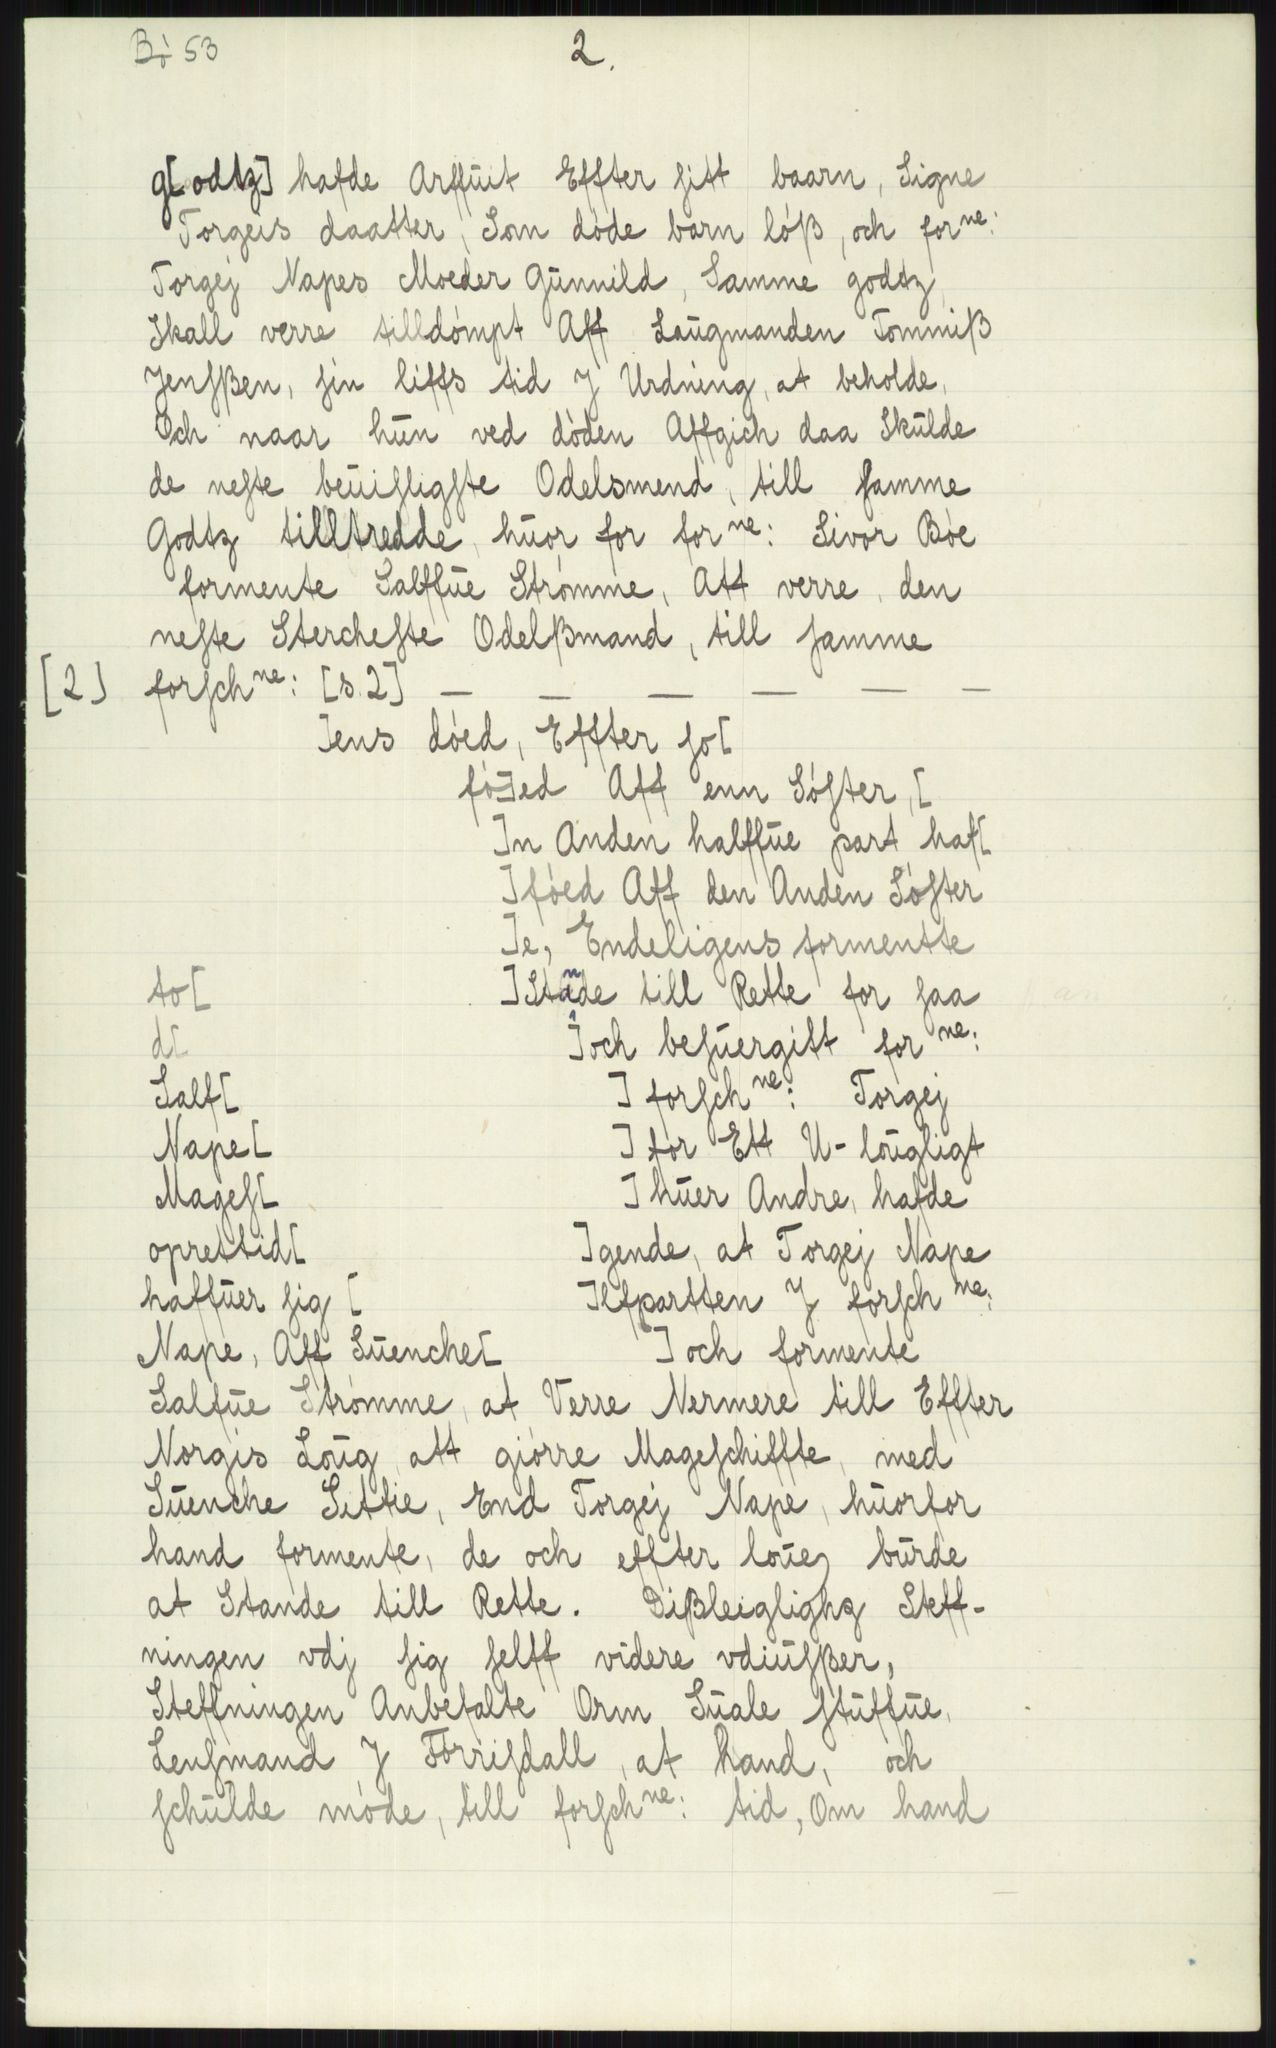 Bò 53
2.
g[odtz] hafde Arffuit Effter sitt baarn, Signe
Torgeis daatter, Som dóde barn lóß, och for ne:
Torgej Napes Moeder Gunnild, Samme godtz,
Skall verre tilldómpt Aff Laugmanden Tommiß
Jensßen, sin liffs tid J Urdning, at beholde,
Och naar hun ved dóden Affgich daa Skulde
de neste beuisligste Odelsmend, till samme
Godtz tilltredde, huor for for ne: Sivor Bóe
formente Salffue Strómme, Att verre, den
neste Stercheste Odelßmand, till samme
[2] forsch ne: [s. 2] — — — — — —
]ens dóed, Effter so[
fó]ed Aff enn Sóster, [
]n Anden halffue part haf[
]fóed Aff den Anden Sóster
]e, Endeligens formentte
to[ ]Stande till Rette for saa
d[ ]och besuergitt for ne:
Salf[ ] forsch ne: Torgej
Nape[ ] for Ett U-lougligt
Mages[ ] huer Andre, hafde
oprettid[ ]gende, at Torgej Nape
haffuer sig [ ]lfpartten J forsch ne:
Nape, Aff Suenche[ ] och formente
Salfue Strómme, at Verre Nermere till Effter
Norgis Loug att giórre Mageschiffte, med
Suenche Settie, End Torgej Nape, huorfor
hand formente, de och effter loue, burde
at Stande till Rette. Dißleiglighz Steff-
ningen vdj sig selff videre vdiusßer,
Steffningen Anbefalte Orm Suale stuffue,
Lensmand J Fórrisdall, at hand, och
schulde móde, till forsch ne: tid, Om hand